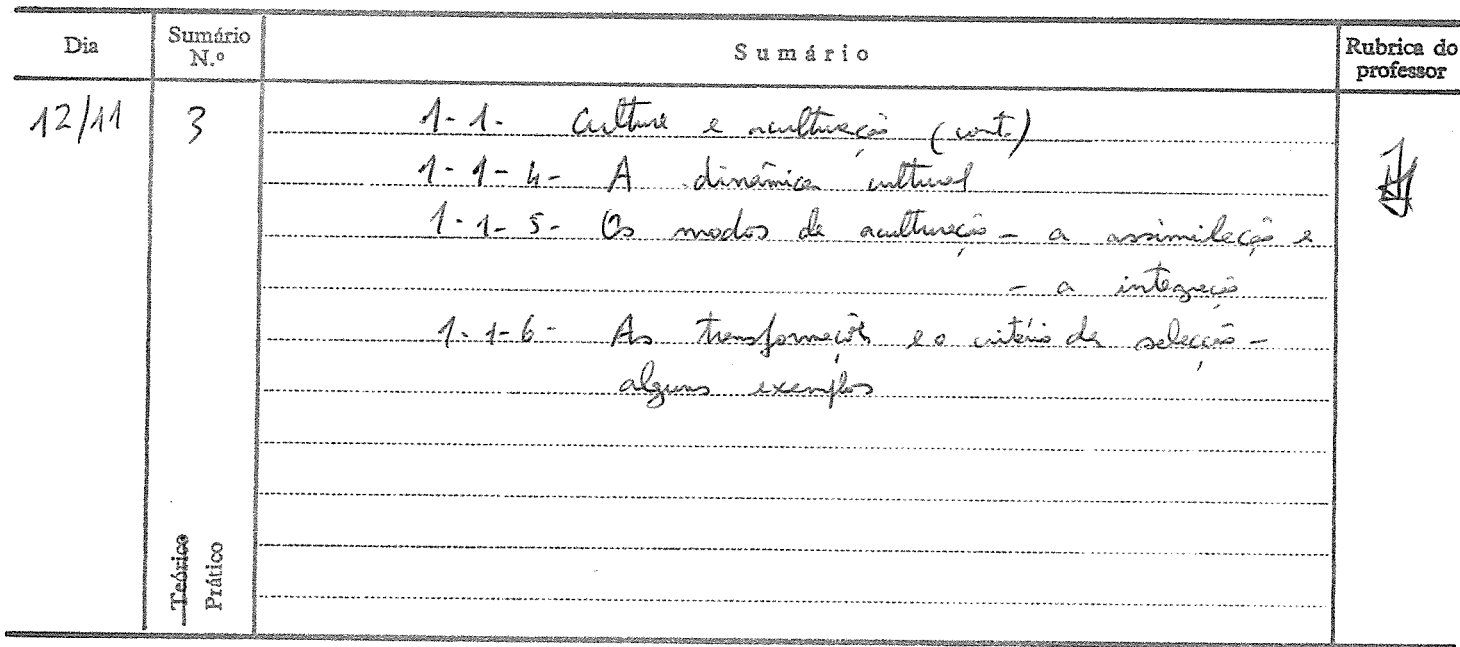 Dia Sumário N.º Sumário Rubrica do professor
12/11 3 1-1- Cultura e aculturação (cont.)
1-1-4- A dinâmica cultural
1-1-5- Os modos de aculturação - a assimilação e
- a integração
1-1-6- As transformações e o critério de selecção -
alguns exemplos
Teórico
Prático